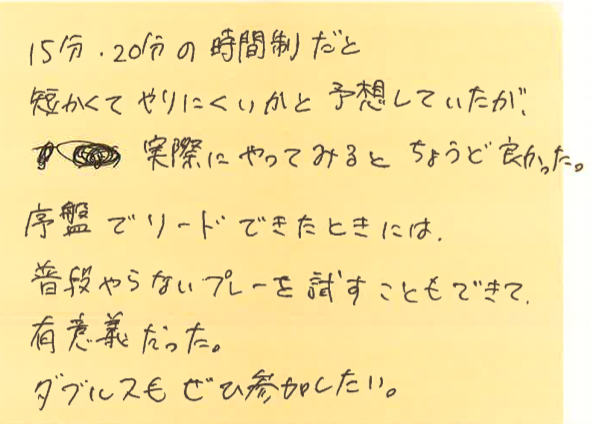 15分・20分の時間制だと
短かくてやりにくいかと予想していたが、
実際にやってみるとちょうど良かった。
序盤でリードできたときには、
普段やらないプレーを試すこともできて、
有意義だった。
ダブルスもぜひ参加したい。